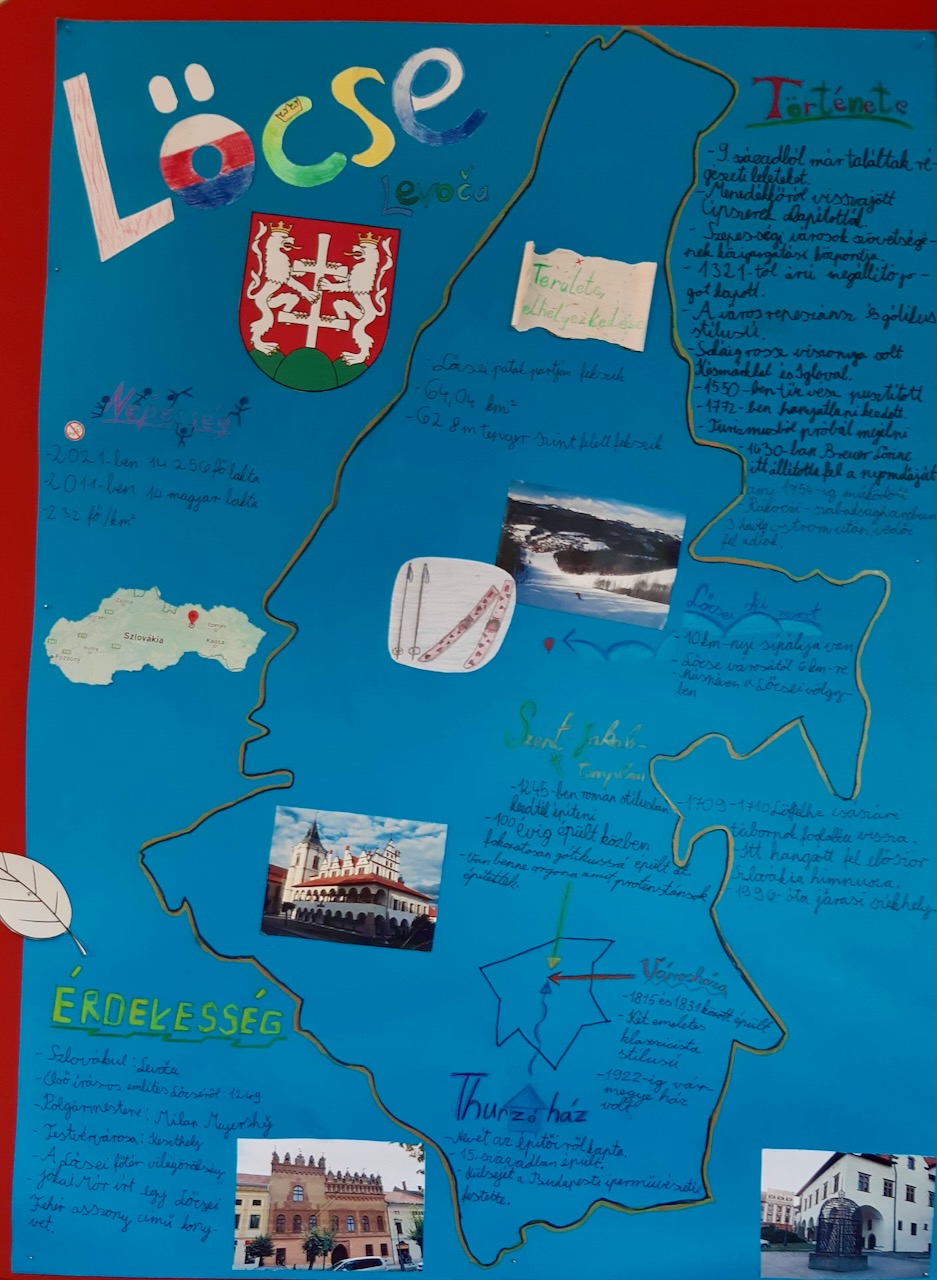 Lőcse
Levoča
Területe,
elhelyezkedése
- Lőcsei patak partján fekszik
- 64,04 km²
- 628 m tenger szint felett fekszik
Népesség
- 2021-ben 14 256 fő lakta
- 2011-ben 14 magyar lakta
- 232 fő/km²
Szlovákia
Pozsony
Kassa
Története
- 9. századból már találtak ré-
gészeti leleteket.
- Menedékkőről visszajött
Cipszerek alapították
- Szepességi városok szövetségé-
nek közigazgatási központja
- 1321-től árú megállító jo-
got kapott.
- A város repeszánsz és gótikus
stílusú.
- Sokáig rossz viszonya volt
Késmárkkal és Iglóval.
- 1550-ben tűz vész pusztított
- 1772-ben hanyatlani kezdett.
- Turizmusból próbál megélni
- 1630-ban Breuer Lőrinc
itt állította fel a nyomdáját
ami 1754-ig működött
Rákóczi-szabadságharcban
3 hónap ostrom után védői
fel adták.
- 1709-1710 Löffelholz császári
tábornok foglalta vissza.
- Itt hangzott fel először
Szlovákia himnusza.
- 1996-óta járási székhely
Lőcsei sí
- 10 km-nyi sípálya van
- Lőcse városától 6 km-re
- Másnéven a Lőcseivölgy-
ben
Szent Jakab-
templom
- 1245-ben román stílusban
kezdték építeni
- 100 évig épült közben
fokozatosan gótikussá épült át
- Van benne orgona amit protestánsok
építettek
Városháza
- 1815 és 1831 között épült
- Két emeletes
klasszicista
stílusú
- 1922-ig vár-
megye ház
volt
Thurzó ház
- Nevét az építőiről kapta
- 15. században épült.
- Külsejét a Budapesti iparművészeti
festette.
ÉRDEKESSÉG
- Szlovákul: Levoča
- Első írásos említés Lőcséről: 1249
- Polgármestere: Milan Majerský
- Testvérvárosa: Keszthely
- A Lőcsei főtér világörökség
- Jókai Mór írt egy Lőcsei
Fehér asszony című köny-
vet.